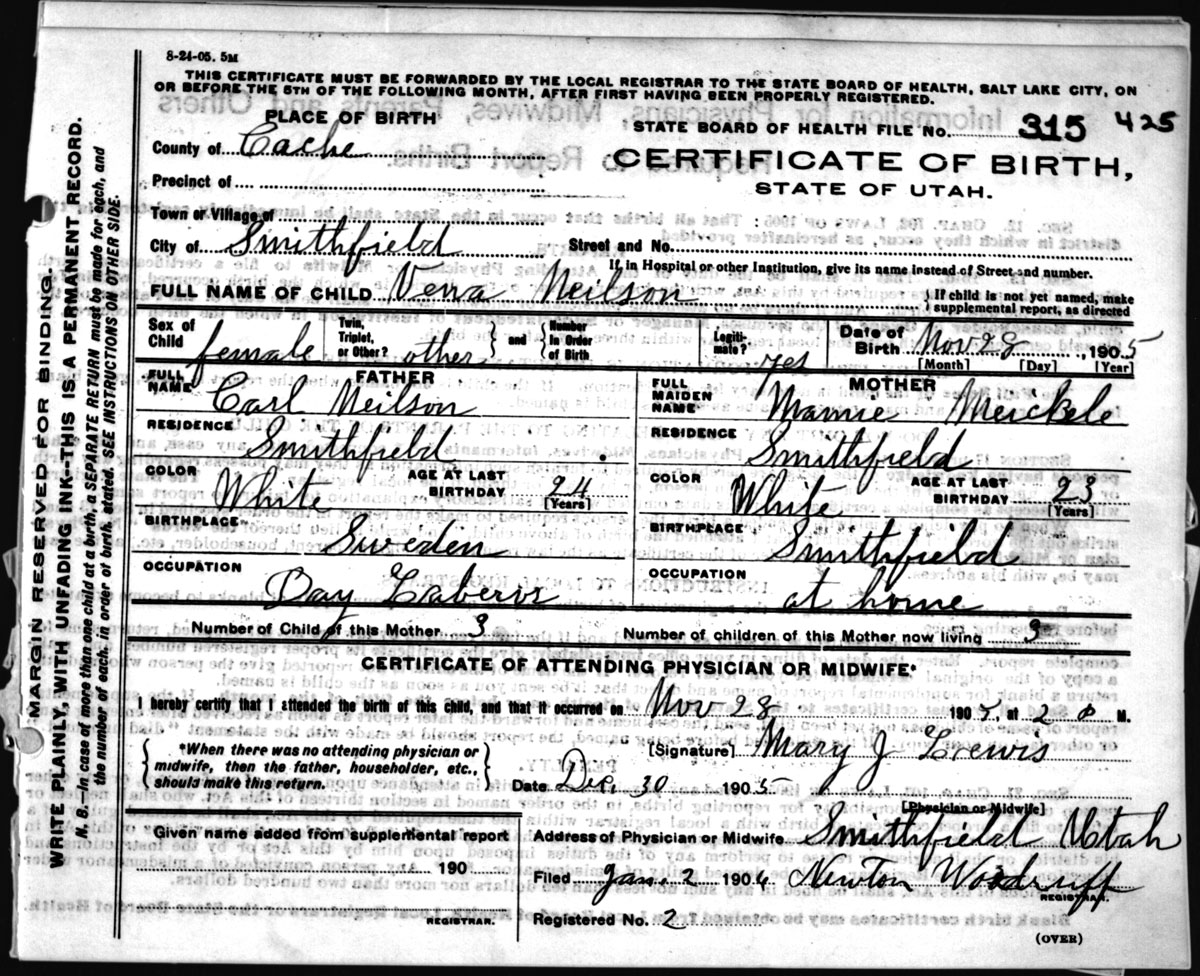 8-24-05. 5M
THIS CERTIFICATE MUST BE FORWARDED BY THE LOCAL REGISTRAR TO THE STATE BOARD OF HEALTH, SALT LAKE CITY, ON
OR BEFORE THE 5TH OF THE FOLLOWING MONTH, AFTER FIRST HAVING BEEN PROPERLY REGISTERED.
PLACE OF BIRTH
STATE BOARD OF HEALTH FILE No. 315 425
County of Cache
CERTIFICATE OF BIRTH,
Precinct of
STATE OF UTAH.
Town or Village of
City of Smithfield Street and No.
If in Hospital or other Institution, give its name instead of Street and number.
FULL NAME OF CHILD Verra Neilson { If child is not yet named, make supplemental report, as directed
Sex of Child female Twin, Triplet, or Other? other } and { Number In Order of Birth Legiti- mate? yes Date of Birth Nov 28, 1905
[Month] [Day] [Year]
FATHER MOTHER
FULL NAME Carl Neilson FULL MAIDEN NAME Mamie Merckele
RESIDENCE Smithfield RESIDENCE Smithfield
COLOR White AGE AT LAST BIRTHDAY 24 [Years] COLOR White AGE AT LAST BIRTHDAY 23 [Years]
BIRTHPLACE Sweden BIRTHPLACE Smithfield
OCCUPATION Day Laberor OCCUPATION at home
Number of Child of this Mother 3 Number of children of this Mother now living 3
CERTIFICATE OF ATTENDING PHYSICIAN OR MIDWIFE*
I hereby certify that I attended the birth of this child, and that it occurred on Nov 28 1905, at 2 P M.
{ *When there was no attending physician or midwife, then the father, householder, etc., should make this return. }
[Signature] Mary J Lewis
Date Dec. 30 1905
[Physician or Midwife]
Given name added from supplemental report
190
REGISTRAR.
Address of Physician or Midwife Smithfield Utah
Filed Jan. 2 1906 Newton Woodruff
REGISTRAR.
Registered No. 2
(OVER)
MARGIN RESERVED FOR BINDING.
WRITE PLAINLY, WITH UNFADING INK--THIS IS A PERMANENT RECORD.
N. B.--In case of more than one child at a birth, a SEPARATE RETURN must be made for each, and
the number of each, in order of birth, stated. SEE INSTRUCTIONS ON OTHER SIDE.